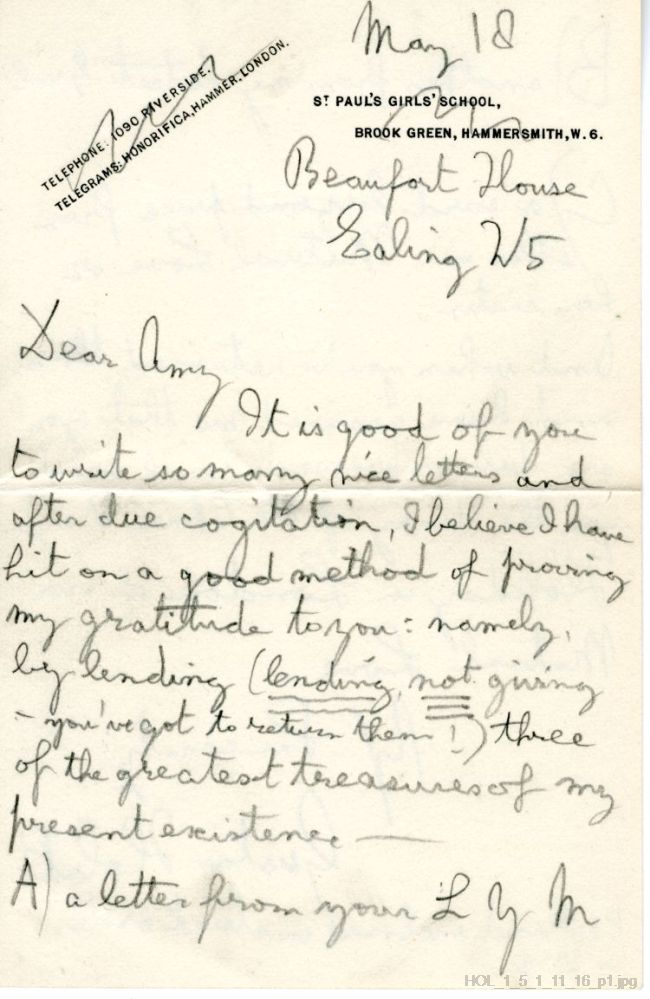 May 18
TELEPHONE: 1090 RIVERSIDE.
TELEGRAMS: HONORIFICA, HAMMER. LONDON.
ST PAUL'S GIRLS' SCHOOL,
BROOK GREEN, HAMMERSMITH, W. 6.
Beaufort House
Ealing W5
Dear Amy
It is good of you
to write so many nice letters and
after due cogitation, I believe I have
hit on a good method of proving
my gratitude to you: namely,
by lending (lending, not giving
- you've got to return them!) three
of the greatest treasures of my
present existence —
A) a letter from your L Y M
HOL_1_5_1_11_16_p1.jpg